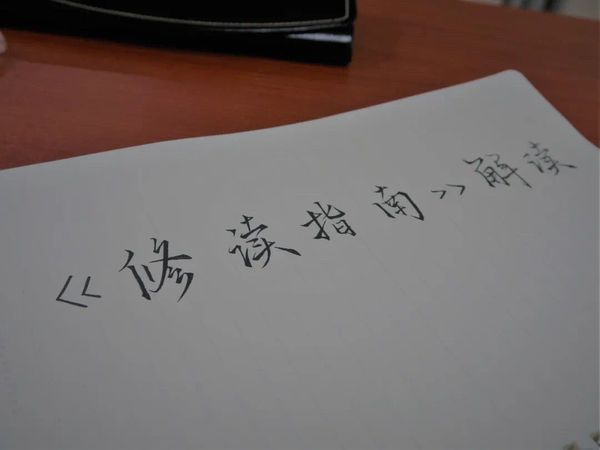 《修读指南》解读